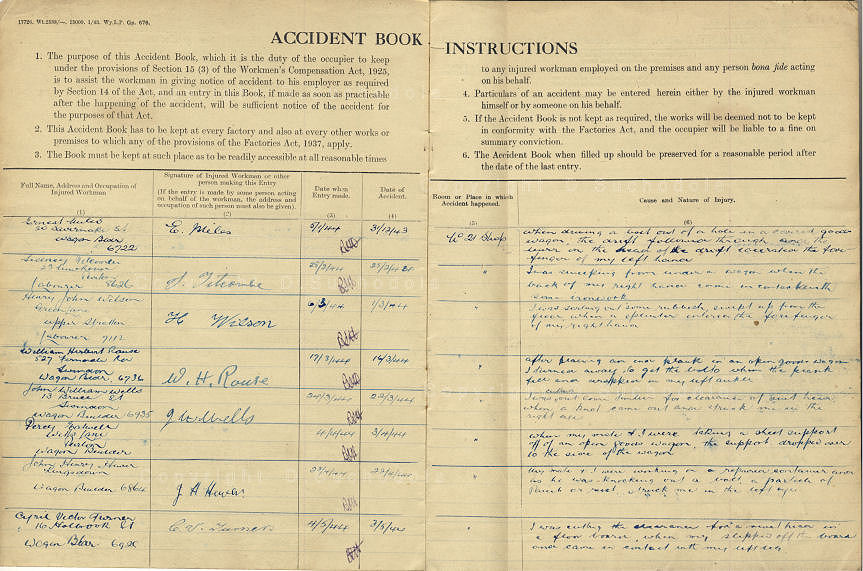 17726. Wt.2539/—. 15000. 1/43. Wy.L.P. Gp. 676.
ACCIDENT BOOK—INSTRUCTIONS
1. The purpose of this Accident Book, which it is the duty of the occupier to keep
under the provisions of Section 15 (3) of the Workmen's Compensation Act, 1925,
is to assist the workman in giving notice of accident to his employer as required
by Section 14 of the Act, and an entry in this Book, if made as soon as practicable
after the happening of the accident, will be sufficient notice of the accident for
the purposes of that Act.
2. This Accident Book has to be kept at every factory and also at every other works or
premises to which any of the provisions of the Factories Act, 1937, apply.
3. The Book must be kept at such place as to be readily accessible at all reasonable times
to any injured workman employed on the premises and any person bona fide acting
on his behalf.
4. Particulars of an accident may be entered herein either by the injured workman
himself or by someone on his behalf.
5. If the Accident Book is not kept as required, the works will be deemed not to be kept
in conformity with the Factories Act, and the occupier will be liable to a fine on
summary conviction.
6. The Accident Book when filled up should be preserved for a reasonable period after
the date of the last entry.
Full Name, Address and Occupation of
Injured Workman
(1)
Signature of Injured Workman or other
person making this Entry
(If the entry is made by some person acting
on behalf of the workman, the address and
occupation of such person must also be given).
(2)
Date when
Entry made.
(3)
Date of
Accident.
(4)
Room or Place in which
Accident happened.
(5)
Cause and Nature of Injury.
(6)
Ernest Miles
Wagon Bldr
6722
E. Miles
5/1/44
31/12/43
21 Shop
when driving a bolt out of a hole in a covered goods
wagon the drift followed through and the
burr on the head of the drift lacerated the fore
finger of my left hand
Sidney Titcombe
Labourer 8626
S. Titcombe
I was sweeping from under a wagon when the
back of my right hand came in contact with
some ironwork
Henry John Wilson
Upper Stratton
Labourer
H Wilson
6/3/44
1/3/44
I was sorting out some rubbish, swept up from the
floor when a splinter entered the fore finger
of my right hand
William Herbert Rouse
527 Ferndale Rd
Swindon
Wagon Bldr. 6736
W. H. Rouse
17/3/44
14/3/44
"
after placing an end plank in an open goods wagon
I turned away to get the bolts when the plank
fell and wrapped in my left ankle
John William Wells
13 Bruce St
Swindon
Wagon Builder 6935
J W Wells
24/3/44
22/3/44
"
when a bolt came out and struck me in the
right eye
Percy
Purton
Wagon Builder
4/4/44
3/4/44
"
when my mate & I were taking a sheet support
off of an open goods wagon, the support dropped over
to the side of the wagon
John Henry
Kingsdown
Wagon Builder 6864
J H
"
My mate & I were working on a repaired container and
as he was knocking out a bolt a particle of
paint or rust, struck me in the left eye
Cyril Victor Turner
16 Holbrook St
Wagon Bldr.
C. V. Turner
4/5/44
3/5/44
"
I was cutting the clearance for a rivet head in
a floor board, when my slipped off the board
and came in contact with my left leg